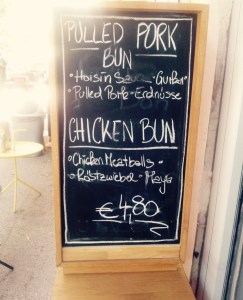 PULLED PORK
BUN
• Hoisin Sauce •
• Pulled Pork • Erdnüsse
CHICKEN BUN
• Chicken Meatballs •
• Röstzwiebel • Mayo
€ 4,80